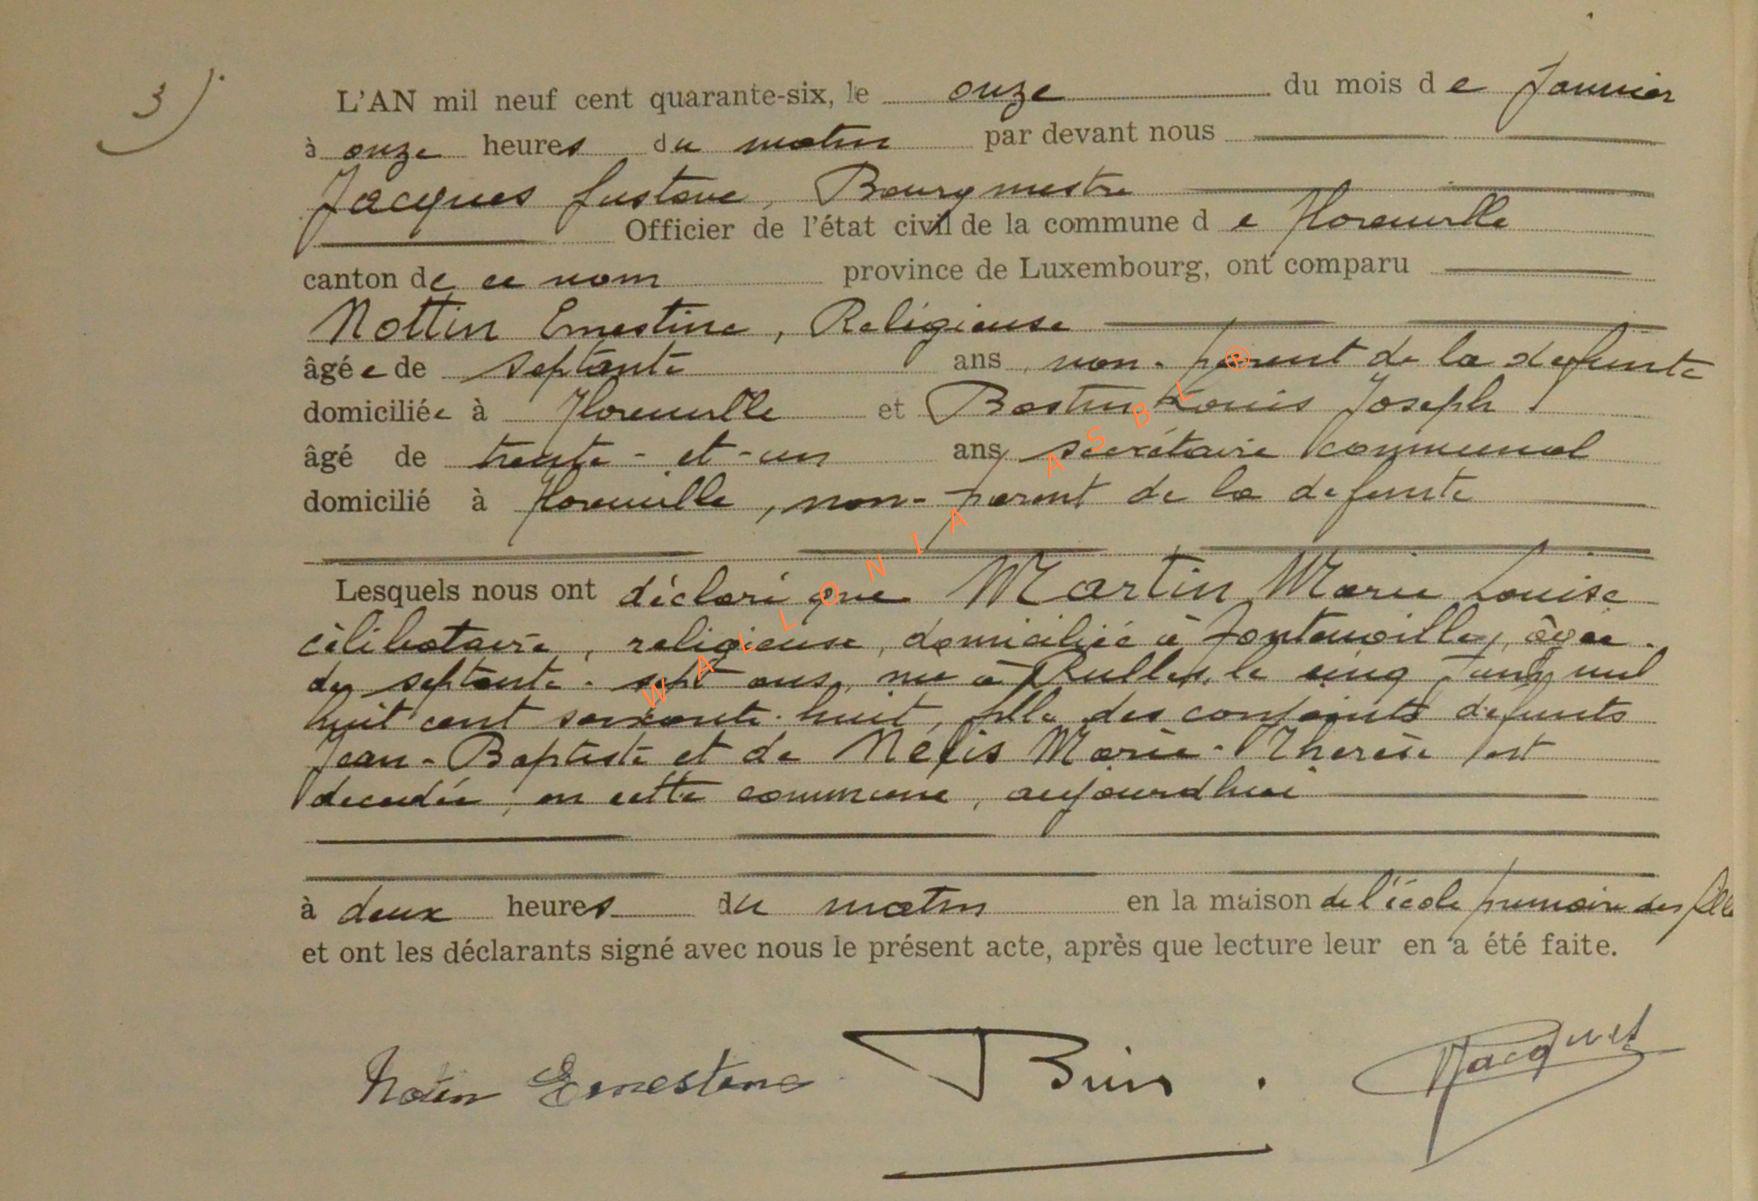 3)
L'AN mil neuf cent quarante-six, le onze du mois de Janvier
à onze heures du matin par devant nous
Jacques Gustave, Bourgmestre
Officier de l'état civil de la commune de Florenville
canton de ce nom province de Luxembourg, ont comparu
Nottin Ernestine, Religieuse
âgée de septante ans, non-parent de la défunte
domiciliée à Florenville et Bastin Louis Joseph
âgé de trente-et-un ans, secrétaire communal
domicilié à Florenville, non-parent de la défunte
Lesquels nous ont déclaré que Martin Marie Louise
célibataire, religieuse, domiciliée à Fontenoille, âgée
de septante-sept ans, née à Rulles, le cinq Juin mil
huit cent soixante-huit, fille des conjoints défunts
Jean-Baptiste et de Marie-Therèse est
decedée, en cette commune, aujourdhui
à deux heures du matin en la maison de l'école primaire des filles
et ont les déclarants signé avec nous le présent acte, après que lecture leur en a été faite.
Ernestine
WALLONIA ASBL ®